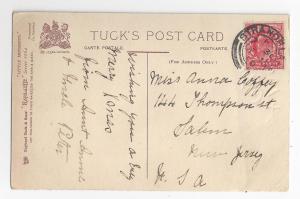 TUCK'S POST CARD
CARTE POSTALE.
POSTKARTE.
(FOR ADDRESS ONLY)
STRANORLAR
Miss Anna
144 Thompson st
Salem
New Jersey
U S A
Wishing you a very
Merry Xmas
from Aunt Annie
& Uncle Peter